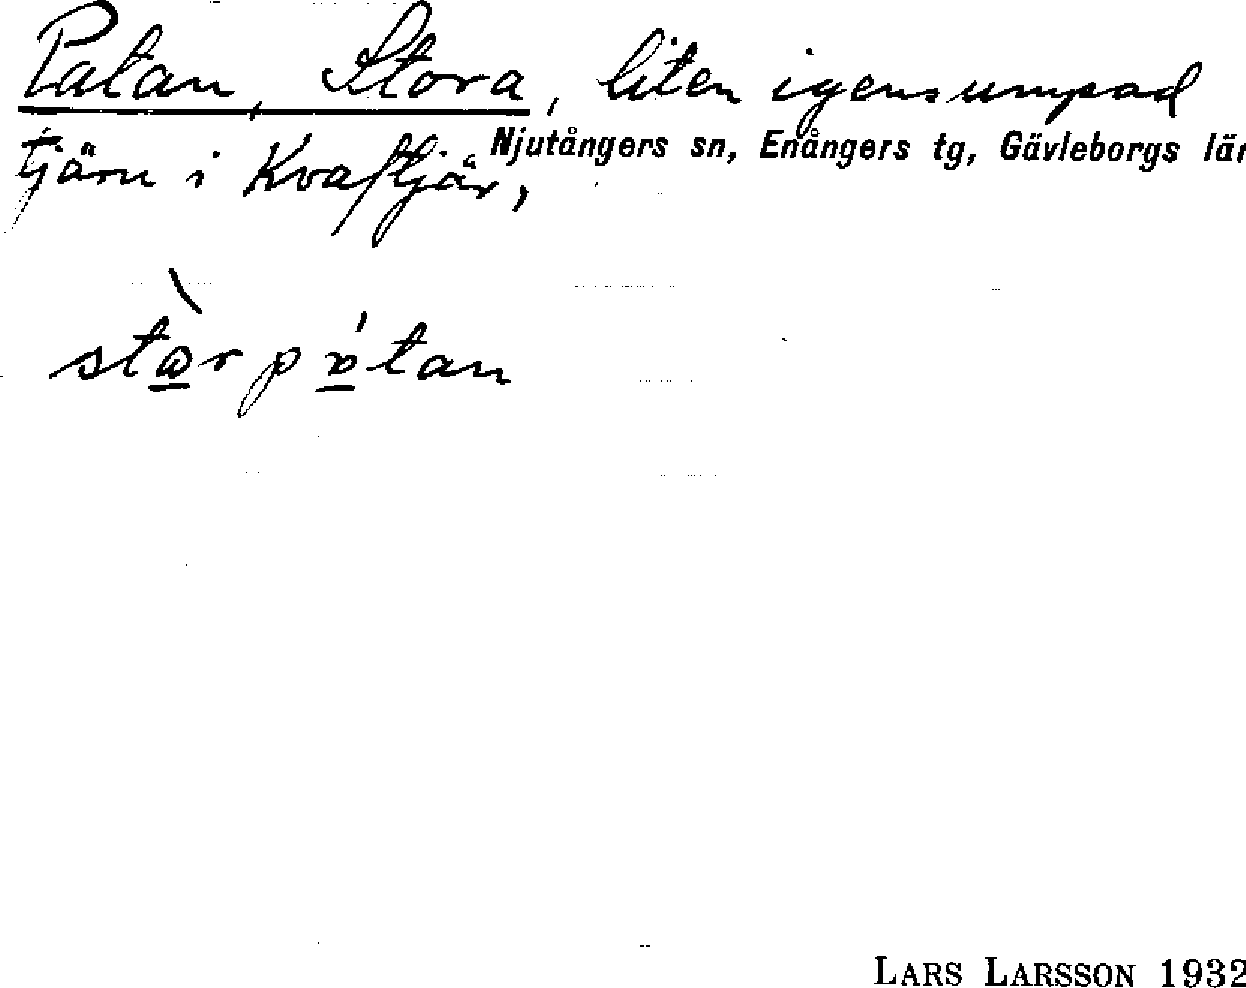 Patan, Stora, liten igensumpad
Njutångers sn, Enångers tg, Gävleborgs län
tjärn i
stàr pátan
LARS LARSSON 1932